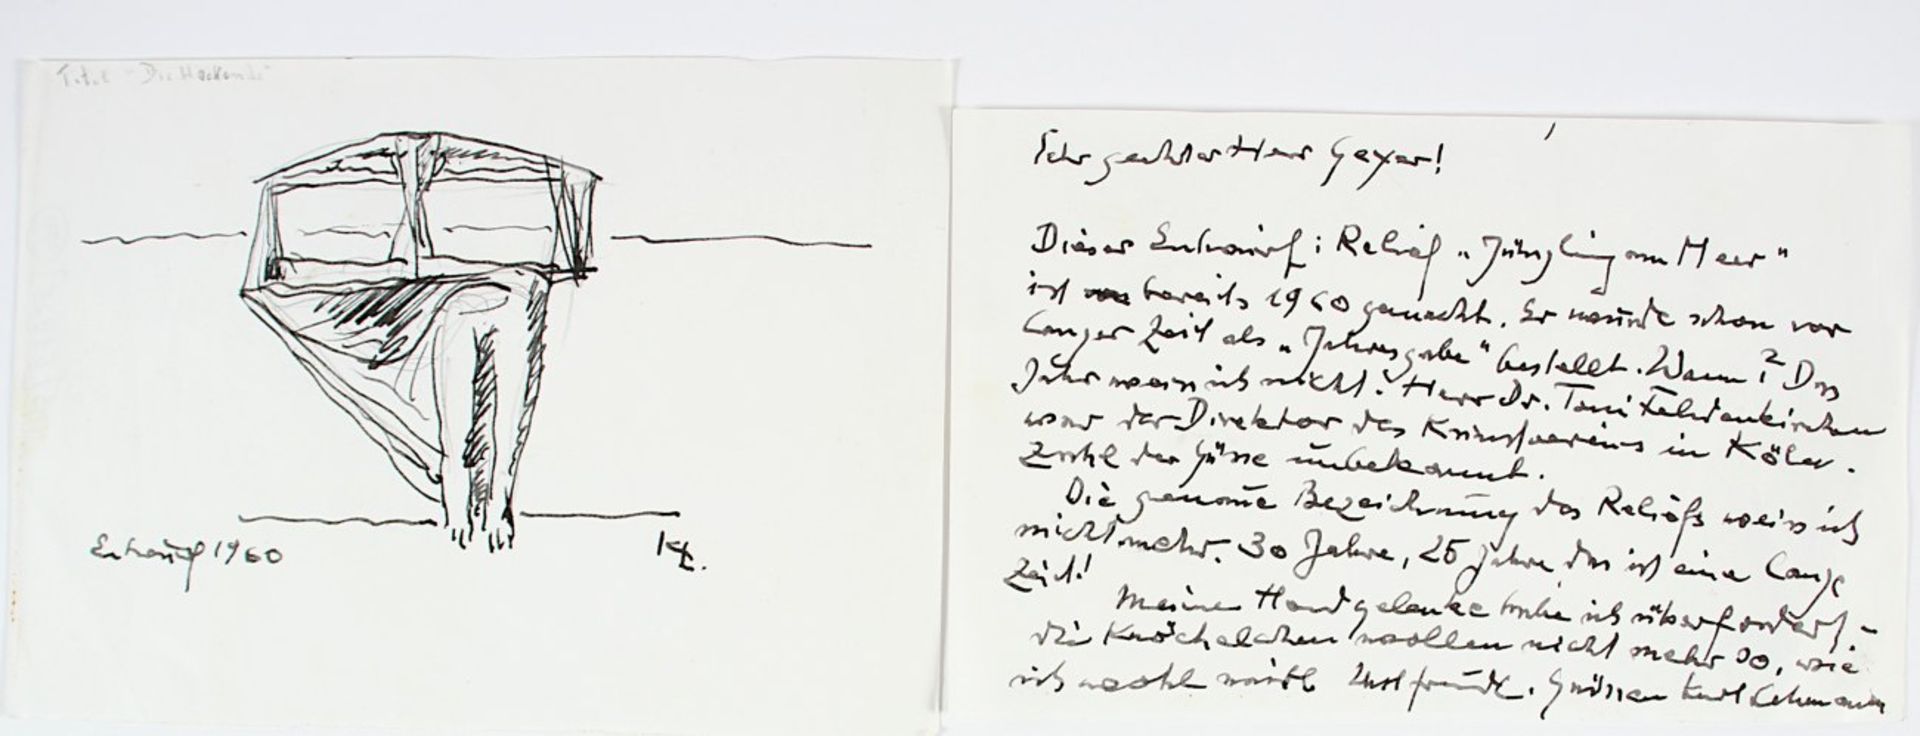 Titel "Die Hockende"
Entwurf 1960
KL.
Sehr geehrter Herr Geyer!
Dieser Entwurf: Relief "Jüngling am Meer"
ist bereits 1960 gemacht. Er wurde schon vor
langer Zeit als "Jahresgabe" bestellt. Wann? Das
Jahr weiss ich nicht. Herr Dr. Toni Feldenkirchen
war der Direktor des Kunstvereins in Köln.
Zahl der Güsse unbekannt.
Die genaue Bezeichnung des Reliefs weiss ich
nicht mehr. 30 Jahre, 25 Jahre, das ist eine lange
Zeit!
Meine Handgelenke habe ich überfordert -
die Knöchelchen wollen nicht mehr so, wie
ich wohl will. Grüssen Kurt Lehmann